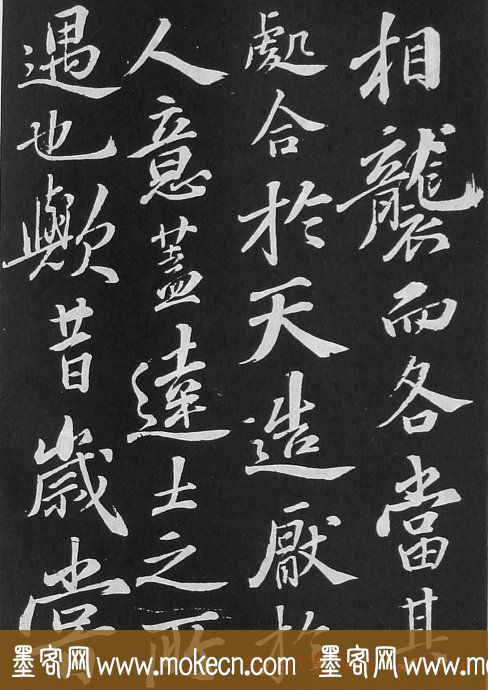 相襲而各當其
處合於天造厭於
人意蓋達士之所
遇也歟昔歲嘗
墨客网 www.mokecn.com 墨客网 www.mokecn.com